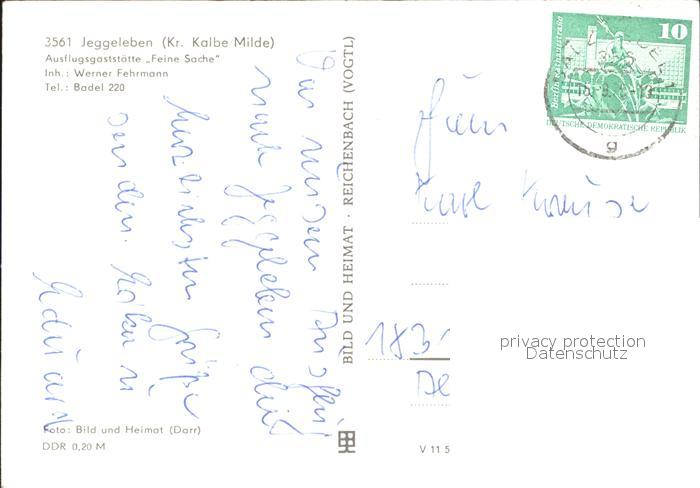 3561 Jeggeleben (Kr. Kalbe Milde)
Ausflugsgaststätte „Feine Sache“
Inh.: Werner Fehrmann
Tel.: Badel 220
Von unserem Ausflug
nach Jeggeleben die
herzlichsten Grüße
senden
BILD UND HEIMAT · REICHENBACH (VOGTL)
Foto: Bild und Heimat (Darr)
DDR 0,20 M
V 11 5
10
Berlin, Rathausstraße
DEUTSCHE DEMOKRATISCHE REPUBLIK
g
Krause
183
privacy protection
Datenschutz